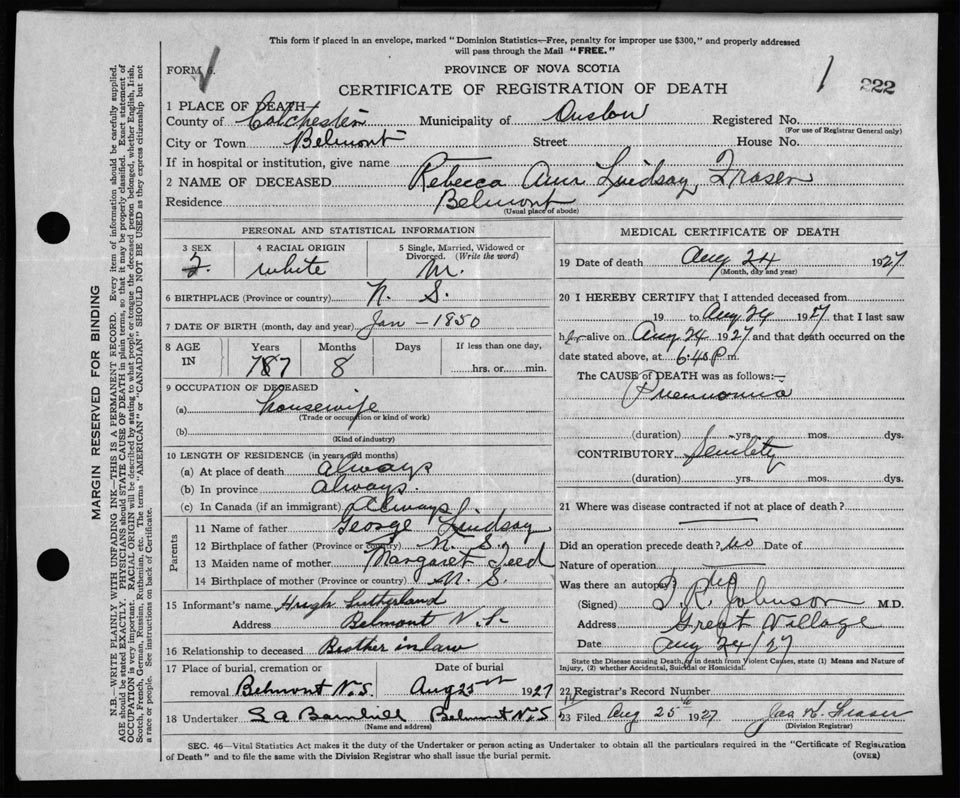 This form if placed in an envelope, marked "Dominion Statistics—Free, penalty for improper use $300," and properly addressed
will pass through the Mail "FREE."
FORM 6.
PROVINCE OF NOVA SCOTIA
CERTIFICATE OF REGISTRATION OF DEATH
1 222
1 PLACE OF DEATH—
County of Colchester Municipality of Onslow Registered No.
(For use of Registrar General only)
City or Town Belmont Street House No.
If in hospital or institution, give name
2 NAME OF DECEASED Rebecca Ann Lindsay Fraser
Residence Belmont
(Usual place of abode)
PERSONAL AND STATISTICAL INFORMATION
3 SEX 4 RACIAL ORIGIN 5 Single, Married, Widowed or
Divorced. (Write the word)
F. white M.
6 BIRTHPLACE (Province or country) N. S.
7 DATE OF BIRTH (month, day and year) Jan - 1850
8 AGE IN Years Months Days If less than one day,
8 hrs. or min.
9 OCCUPATION OF DECEASED
(a) housewife
(Trade or occupation or kind of work)
(b)
(Kind of industry)
10 LENGTH OF RESIDENCE (in years and months)
(a) At place of death always
(b) In province always.
(c) In Canada (if an immigrant) Always
Parents
11 Name of father George Lindsay
12 Birthplace of father (Province or country) N. S.
13 Maiden name of mother Margaret Teed
14 Birthplace of mother (Province or country) N. S.
15 Informant's name Hugh Sutherland
Address Belmont N.S.
16 Relationship to deceased Brother in law
17 Place of burial, cremation or Date of burial
removal Belmont N.S. Aug 25th 1927
18 Undertaker S A Barnhill Belmont N.S
(Name and address)
MEDICAL CERTIFICATE OF DEATH
19 Date of death Aug 24 1927
(Month, day and year)
20 I HEREBY CERTIFY that I attended deceased from
19 to Aug 24 1927 that I last saw
her alive on Aug 24 1927 and that death occurred on the
date stated above, at 6.40 P m.
The CAUSE of DEATH was as follows:—
Pneumonia
(duration) yrs. mos. dys.
CONTRIBUTORY Senility
(duration) yrs. mos. dys.
21 Where was disease contracted if not at place of death?
Did an operation precede death? No Date of
Nature of operation
Was there an autopsy? No
(Signed) T. R. Johnson M.D.
Address Great Village
Date Aug 24/27
State the Disease causing Death, or in death from Violent Causes, state (1) Means and Nature of
Injury, (2) whether Accidental, Suicidal or Homicidal.
22 Registrar's Record Number
23 Filed Aug 25th 1927 Jas W. Fraser
(Division Registrar)
SEC. 46—Vital Statistics Act makes it the duty of the Undertaker or person acting as Undertaker to obtain all the particulars required in the "Certificate of Registration
of Death" and to file the same with the Division Registrar who shall issue the burial permit. (OVER)
MARGIN RESERVED FOR BINDING
N.B.—WRITE PLAINLY WITH UNFADING INK—THIS IS A PERMANENT RECORD. Every item of information should be carefully supplied.
AGE should be stated EXACTLY. PHYSICIANS should STATE CAUSE OF DEATH in plain terms, so that it may be properly classified. Exact statement of
OCCUPATION is very important. RACIAL ORIGIN will be described by stating to what people or tongue the deceased person belonged, whether English, Irish,
Scotch, French, German, Russian, Ruthenian, etc. The terms "AMERICAN" or "CANADIAN" SHOULD NOT BE USED as they express citizenship but not
a race or people. See instructions on back of Certificate.